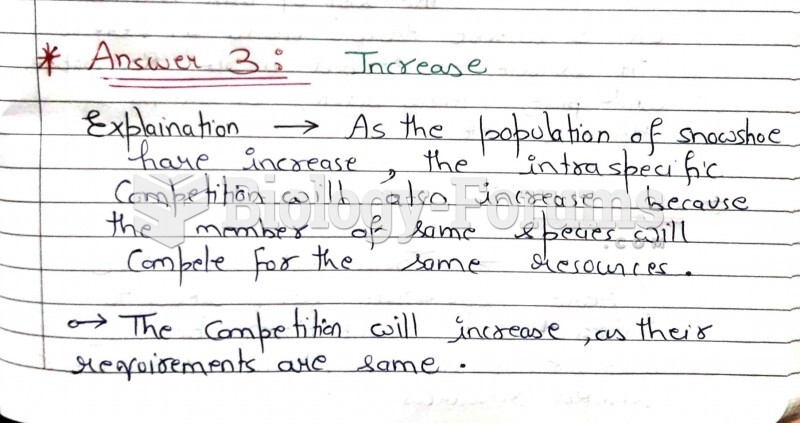 * Answer 3: Increase
Explaination → As the population of snowshoe
hare increase, the intraspecific
Competition will also increase because
the member of same species will
Compete for the same resources.
→ The competition will increase, as their
requirements are same.
Biology-Forums
.COM